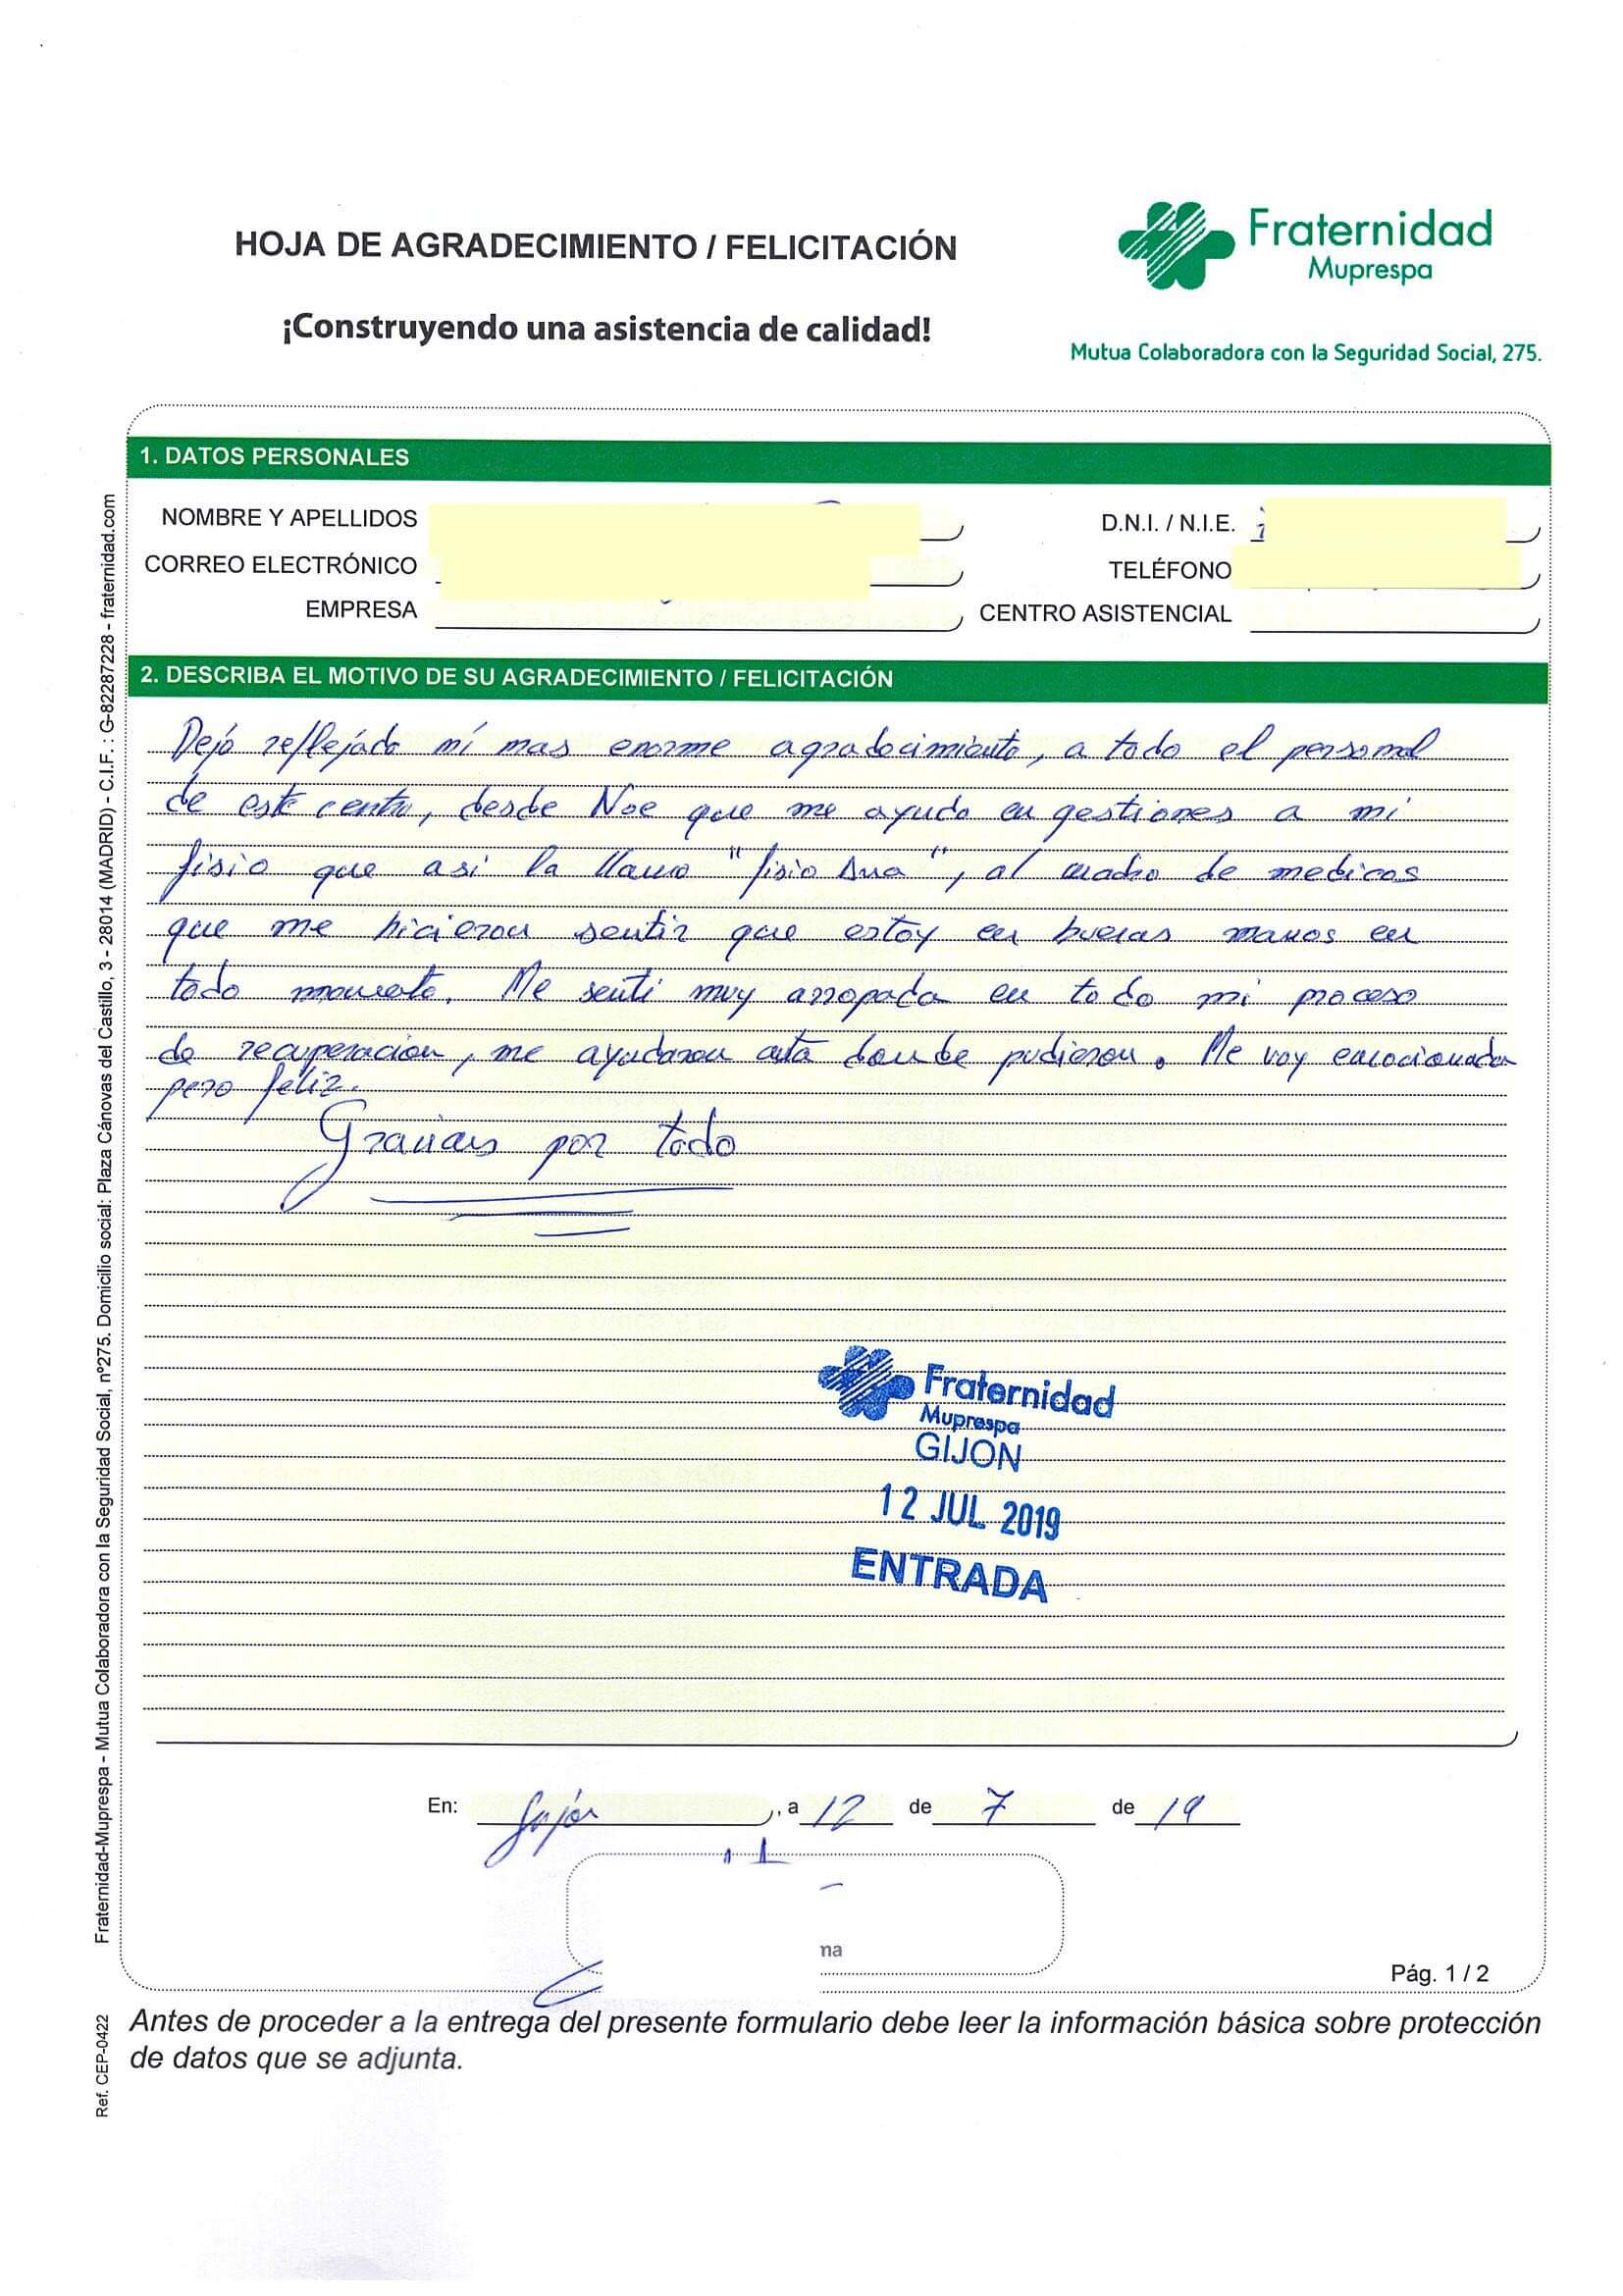 HOJA DE AGRADECIMIENTO / FELICITACIÓN
¡Construyendo una asistencia de calidad!
Fraternidad
Muprespa
Mutua Colaboradora con la Seguridad Social, 275.
1. DATOS PERSONALES
NOMBRE Y APELLIDOS
D.N.I. / N.I.E.
CORREO ELECTRÓNICO
TELÉFONO
EMPRESA
CENTRO ASISTENCIAL
2. DESCRIBA EL MOTIVO DE SU AGRADECIMIENTO / FELICITACIÓN
Dejó reflejado mí mas enorme agradecimiento, a todo el personal
de este centro, desde Noe que me ayudo en gestiones a mi
fisio que asi la llamo "fisio Ana", al cuadro de medicos
que me hicieron sentir que estoy en buenas manos en
todo momento. Me senti muy arropada en todo mi proceso
de recuperacion, me ayudaron asta donde pudieron. Me voy emocionada
pero feliz.
Gracias por todo
Fraternidad
Muprespa
GIJON
12 JUL 2019
ENTRADA
En: Gijón, a 12 de 7 de 19
na
Pág. 1 / 2
Antes de proceder a la entrega del presente formulario debe leer la información básica sobre protección
de datos que se adjunta.
Fraternidad-Muprespa - Mutua Colaboradora con la Seguridad Social, nº275. Domicilio social: Plaza Cánovas del Castillo, 3 - 28014 (MADRID) - C.I.F. : G-82287228 - fraternidad.com
Ref. CEP-0422